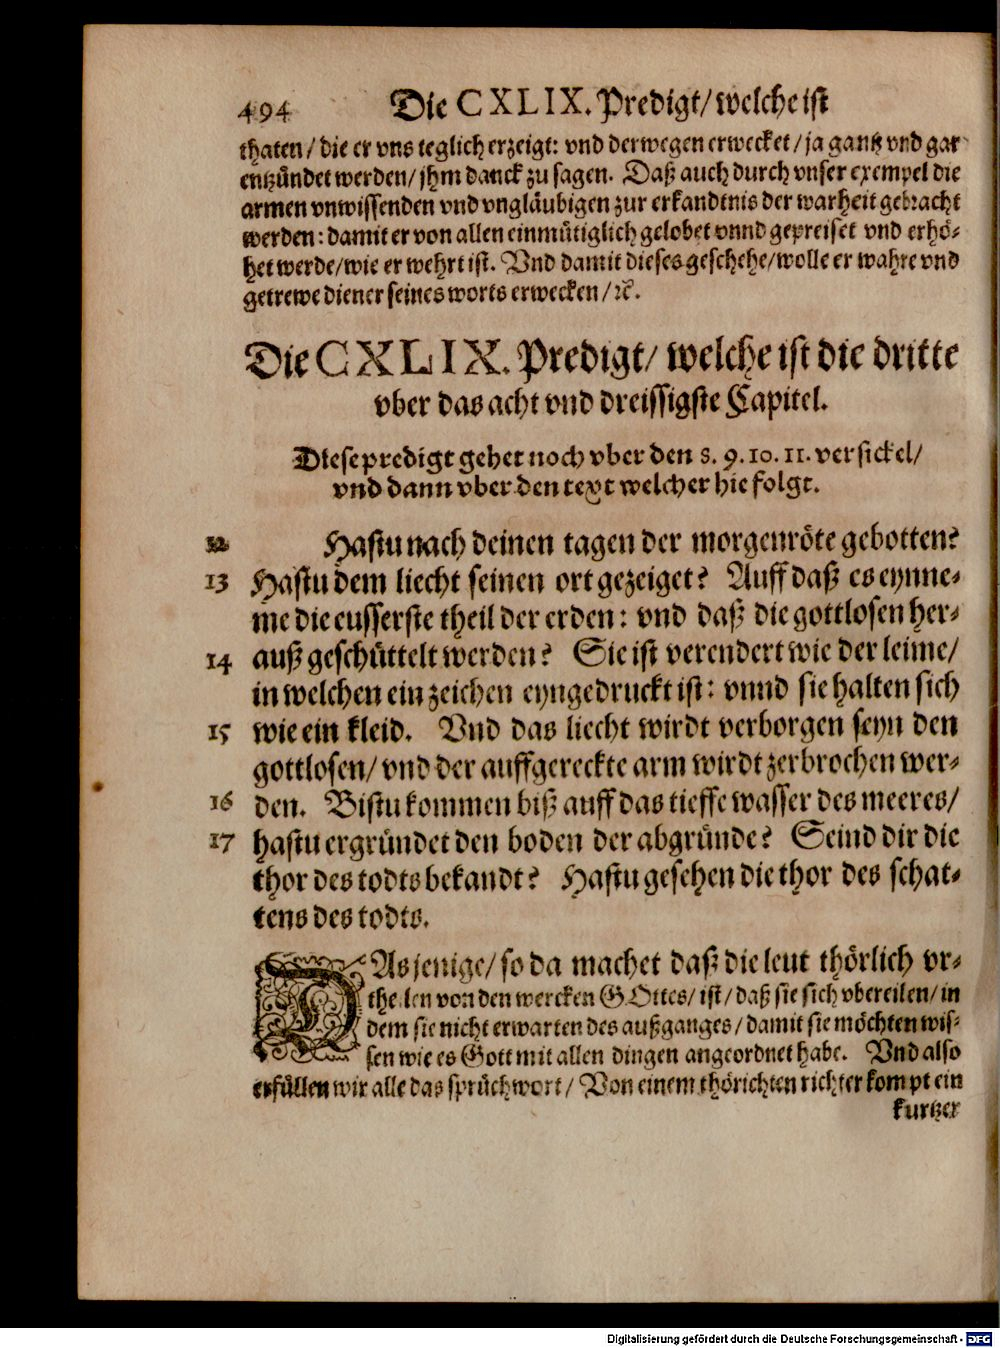 494 Die CXLIX. Predigt/ welche ist
thaten/ die er vns teglich erzeigt: vnd derwegen erwecket/ ja gantz vnd gar
entzündet werden/ jhm danck zu sagen. Daß auch durch vnser exempel die
armen vnwissenden vnd vngläubigen zur erkandtnis der warheit gebracht
werden: damit er von allen einmütiglich gelobet vnnd gepreiset vnd erhö-
het werde/ wie er wehrt ist. Vnd damit dieses geschehe/ wolle er wahre vnd
getrewe diener seines worts erwecken/ ꝛc.
Die CXLIX. Predigt/ welche ist die dritte
vber das acht vnd dreissigste Capitel.
Diese predigt gehet noch vber den 8. 9. 10. 11. versickel/
vnd dann vber den text welcher hie folgt.
12 Hastu nach deinen tagen der morgenröte gebotten?
13 Hastu dem liecht seinen ort gezeiget? Auff daß es eynne-
me die eusserste theil der erden: vnd daß die gottlosen her-
14 auß geschüttelt werden? Sie ist verendert wie der leime/
in welchen ein zeichen eyngedruckt ist: vnnd sie halten sich
15 wie ein kleid. Vnd das liecht wirdt verborgen seyn den
gottlosen/ vnd der auffgereckte arm wirdt zerbrochen wer-
16 den. Bistu kommen biß auff das tieffe wasser des meeres/
17 hastu ergründet den boden der abgründe? Seind dir die
thor des todts bekandt? Hastu gesehen die thor des schat-
tens des todts.
DAs jenige/ so da machet daß die leut thörlich vr-
theilen von den wercken GOttes/ ist/ daß sie sich vbereilen/ in
dem sie nicht erwarten des außganges/ damit sie möchten wis-
sen wie es Gott mit allen dingen angeordnet habe. Vnd also
erfüllen wir alle das sprüchwort/ Von einem thörichten richter kompt ein
kurtzer
Digitalisierung gefördert durch die Deutsche Forschungsgemeinschaft - DFG